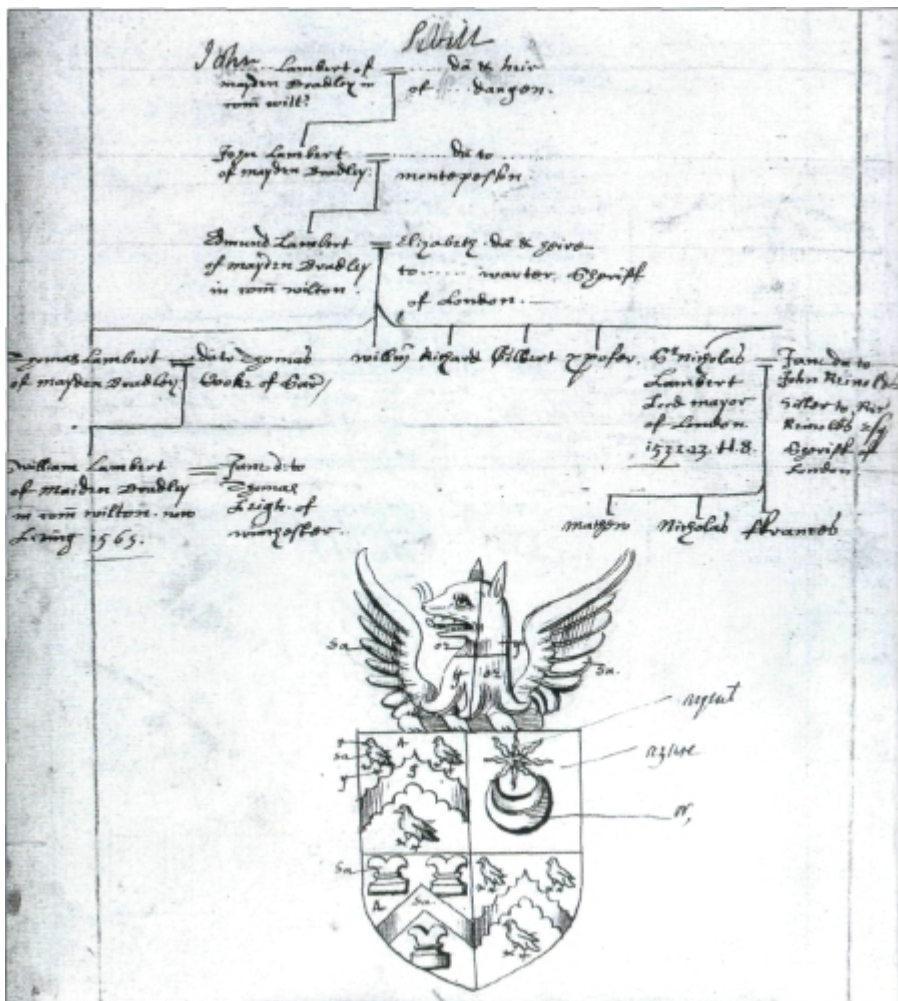 John Sibill
Lambert of
mayden Bradley in
com̄ wilt?
..... da & heir
of ... dangon.
John Lambert
of mayden Bradley.
........ da to ......
monteposkn
Edmund Lambert
of mayden Bradley
in com̄ wilton.
Elizabeth da & heire
to ...... warter. Sheriff
of London.
Thomas Lambert
of mayden Bradley
da to Thomas
Cooke of Sar̄
willm̄ Richard Gilbert xpofer.
Sr Nicholas
Lambert
Lord mayor
of London
1532.23.H.8.
Jane da to
John Reinolds
sister to
Reinolds esq
Sheriff of
London
William Lambert
of Maiden Bradley
in com̄ wilton. now
Living 1565.
Jane d: to
Thomas
Leigh. of
winchester.
Mathew Nicholas ffrances
Sa or g Sa.
g or
argent
azure
or,
A
Sa
g
g
Sa
A Sa